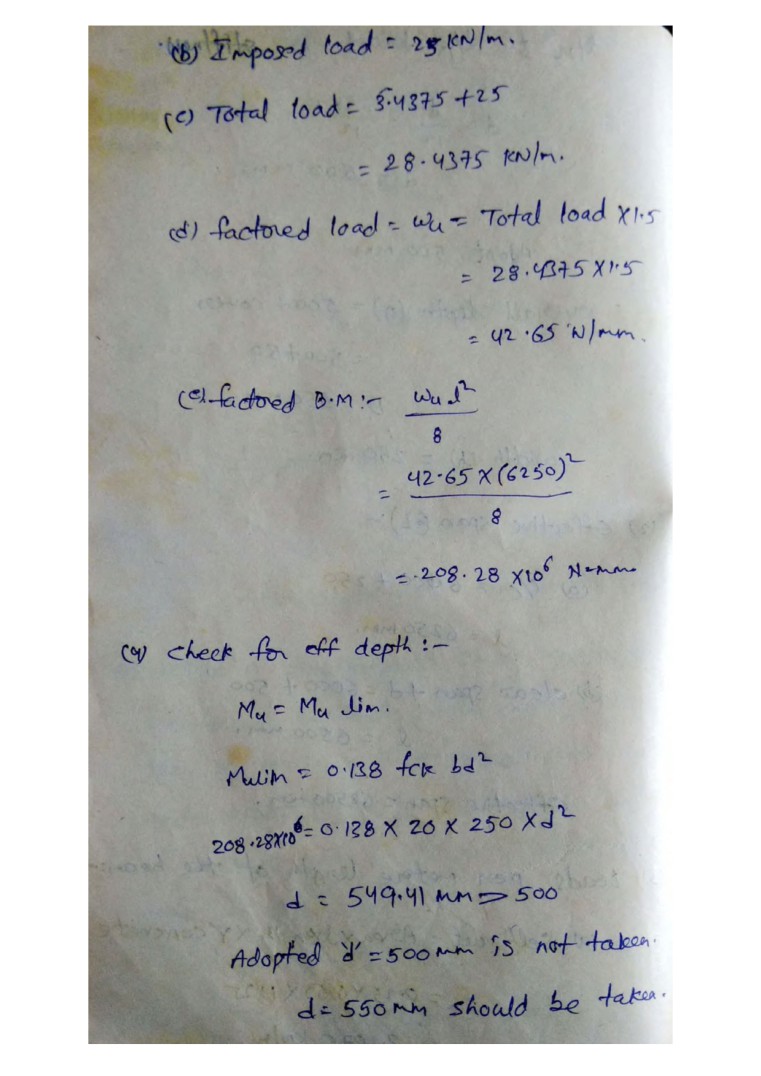 (b) Imposed load = 25 KN/m.
(c) Total load = 3.4375 + 25
= 28.4375 KN/m.
(d) factored load = Wu = Total load X1.5
= 28.4375 X1.5
= 42.65 N/mm.
(e) factored B.M :- Wu l²
8
= 42.65 X (6250)²
8
= 208.28 X10⁶ N-mm
check for eff depth :-
Mu = Mu lim.
Mulim = 0.138 fck bd²
208.28X10⁶ = 0.138 X 20 X 250 X d²
d = 549.41 mm > 500
Adopted 'd' = 500 mm is not taken.
d = 550 mm should be taken.